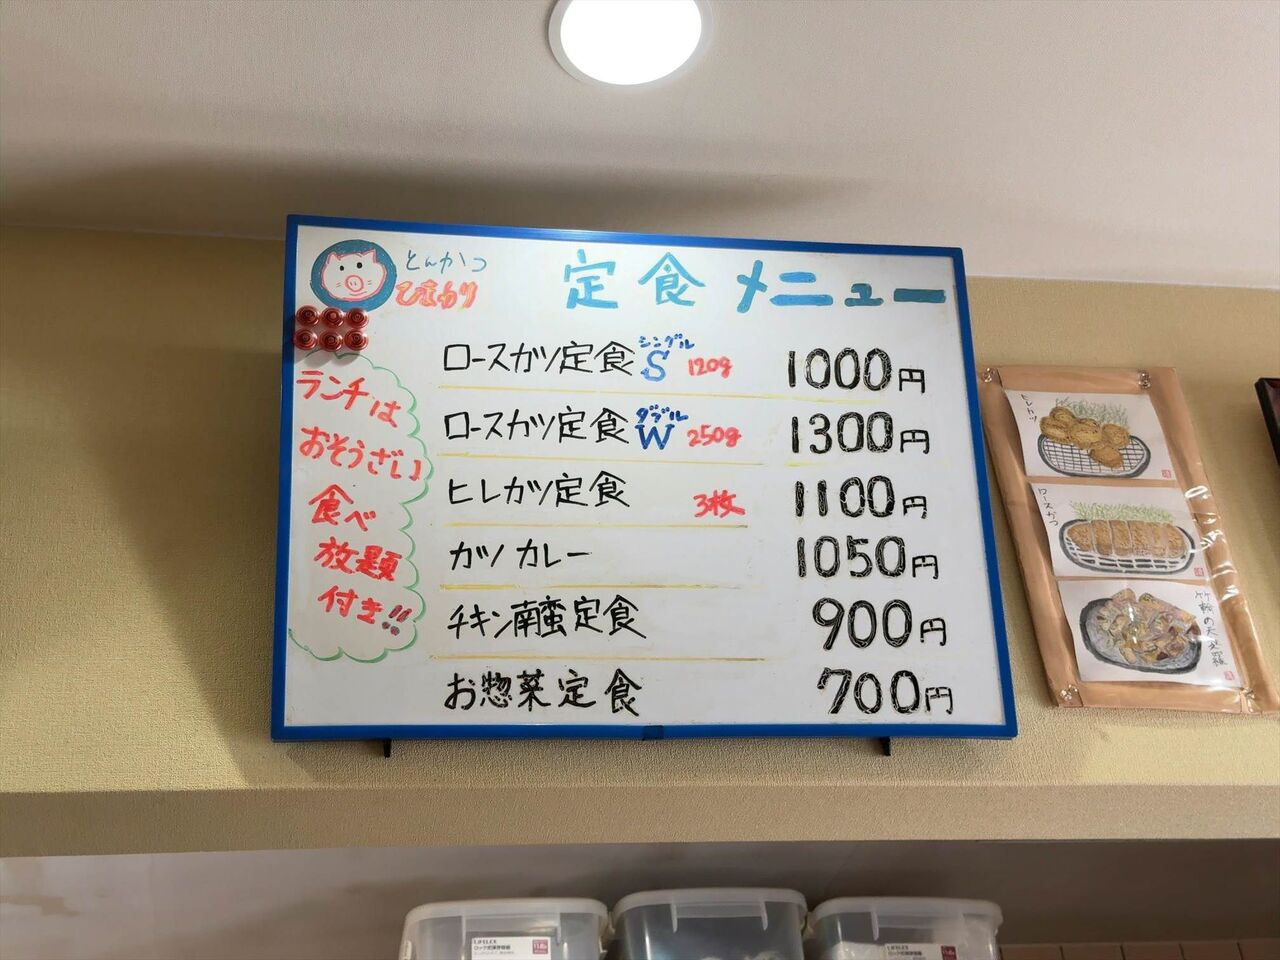 とんかつ
ひまわり
定食メニュー
ロースカツ定食 シングル S 120g 1000円
ロースカツ定食 ダブル W 250g 1300円
ヒレカツ定食 3枚 1100円
カツカレー 1050円
チキン南蛮定食 900円
お惣菜定食 700円
ランチは
おそうざい
食べ
放題
付き!!
ヒレカツ
ロースかつ
竹輪の天麩羅